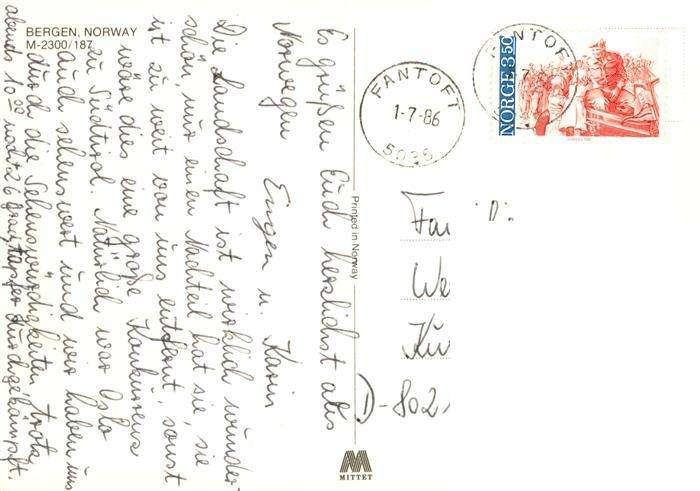 BERGEN, NORWAY
M-2300/187
Es grüßen Euch herzlichst aus
Norwegen Eugen u. Karin
Die Landschaft ist wirklich wunder-
schön, nur einen Nachteil hat sie, sie
ist zu weit von uns entfernt, sonst
wäre dies eine große Konkurrenz
zu Südtirol. Natürlich war Oslo
auch sehenswert und wir haben uns
durch die Sehenswürdigkeiten trotz
abends 10 00 noch 26 grad, tapfer durchgekämpft.
Printed in Norway
MITTET
FANTOFT
1-7-86
5036
FANTOFT
7
NORGE 350
Fam D.
We
Ku
D-802